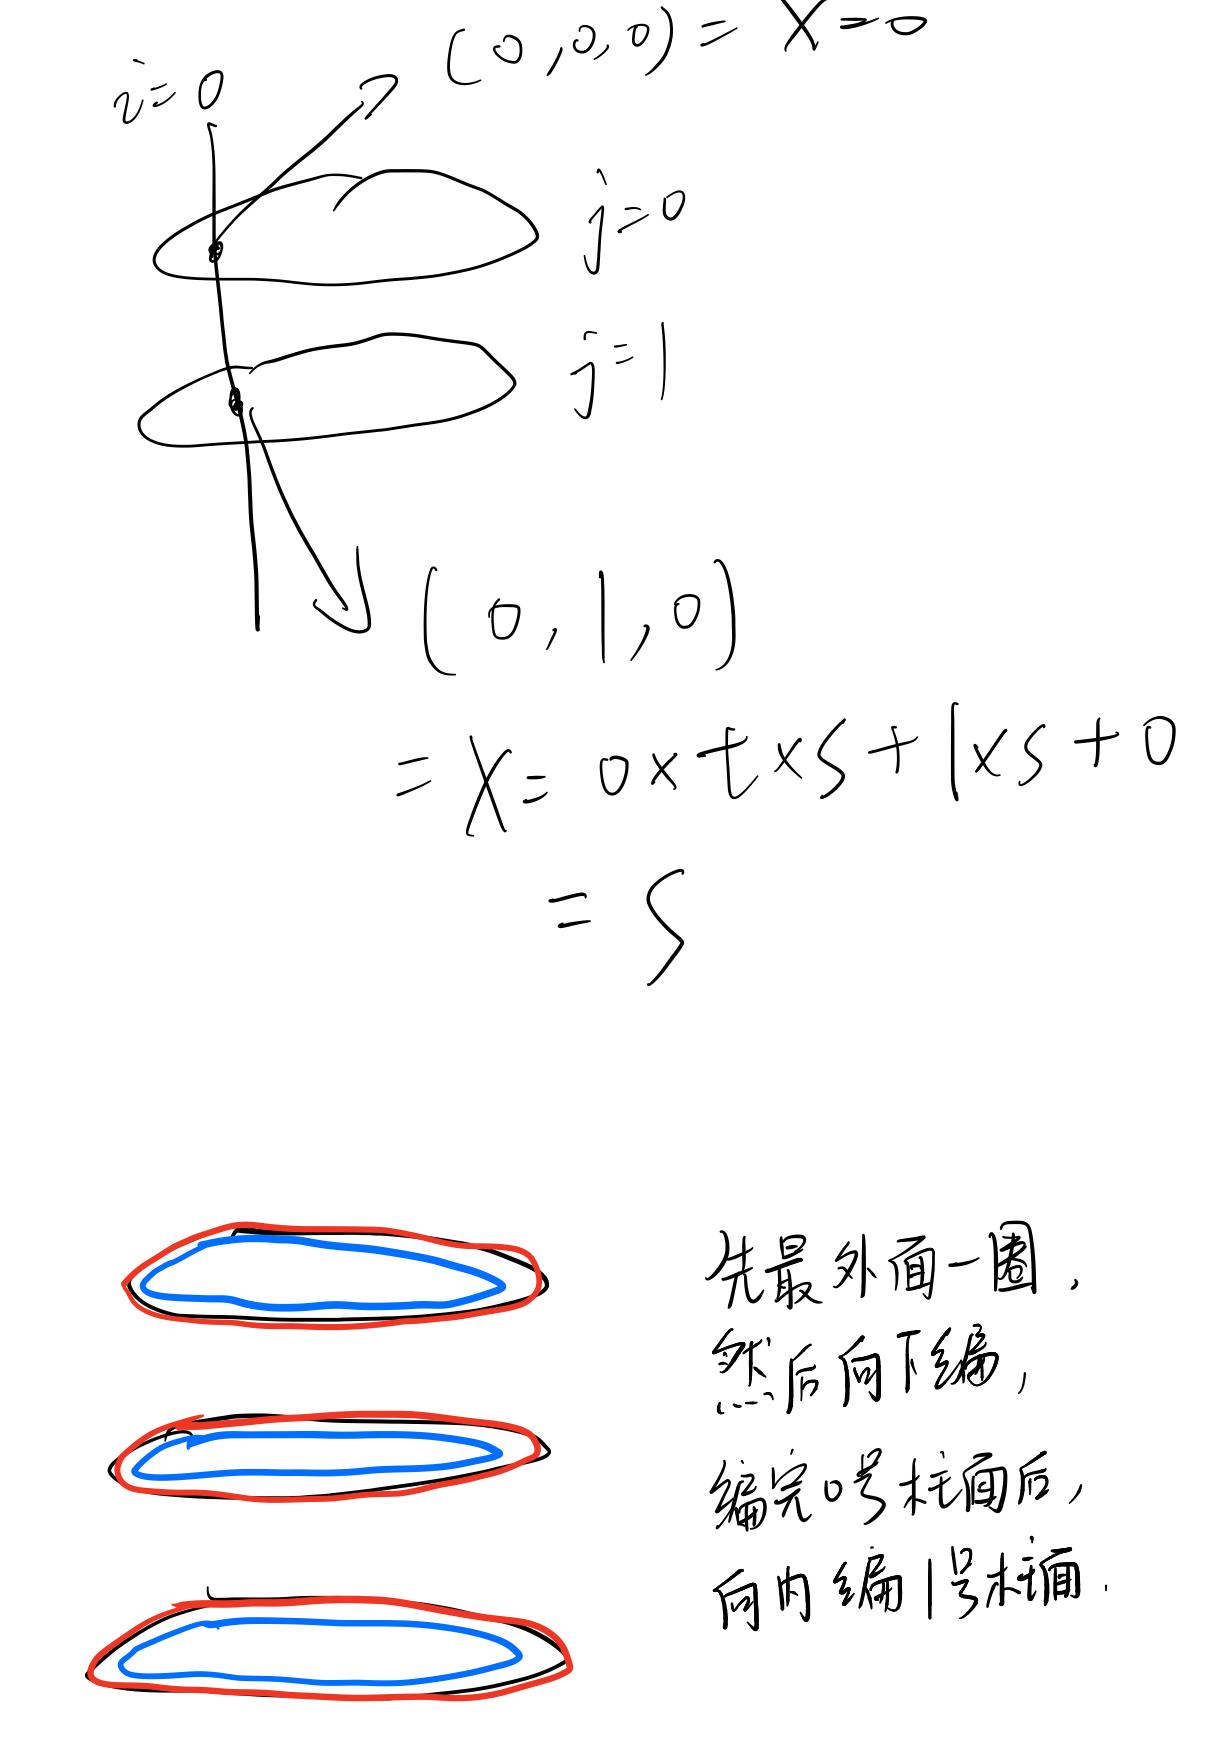 (0,0,0) = X=0
i=0
j=0
j=1
(0,1,0)
=X=0×t×s+1×s+0
=s
先最外面一圈,
然后向下编,
编完0号柱面后,
向内编1号柱面.